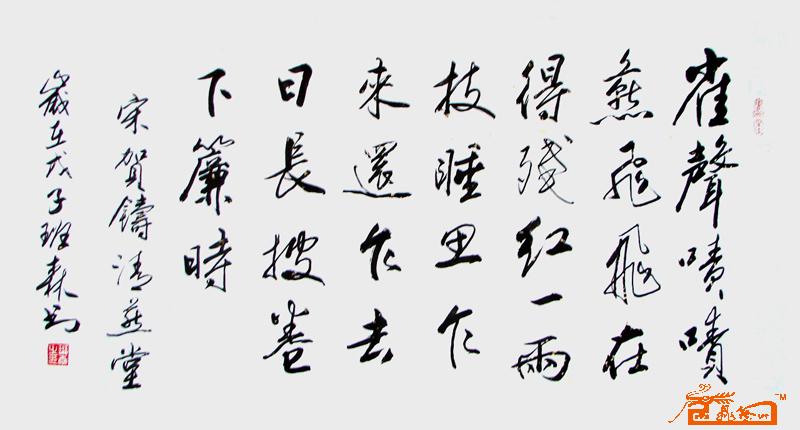 雀聲嘖嘖
燕飛飛在
得殘紅一兩
枝睡思乍
來還乍去
日長披卷
下簾時
宋賀鑄清燕堂
歲在戊子班森书